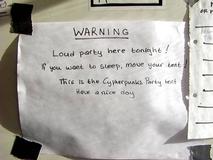 WARNING
Loud party here tonight!
If you want to sleep, move your tent!
This is the Cypherpunks Party tent
Have a nice day